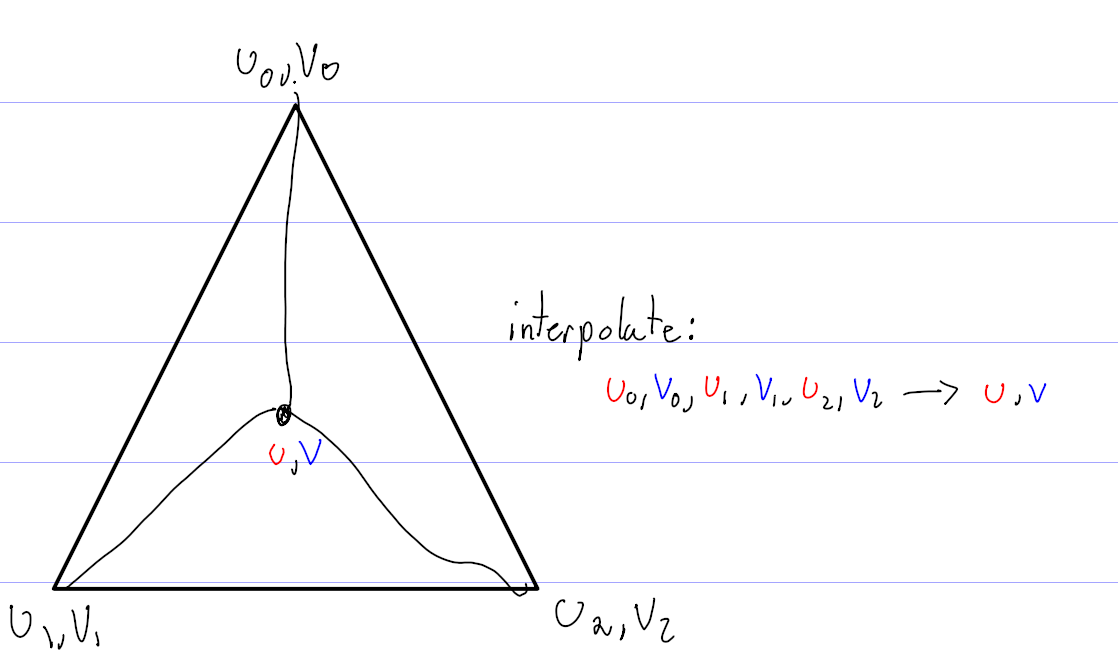 U₀,V₀
interpolate:
U₀,V₀,U₁,V₁,U₂,V₂ → U,V
U,V
U₁,V₁
U₂,V₂